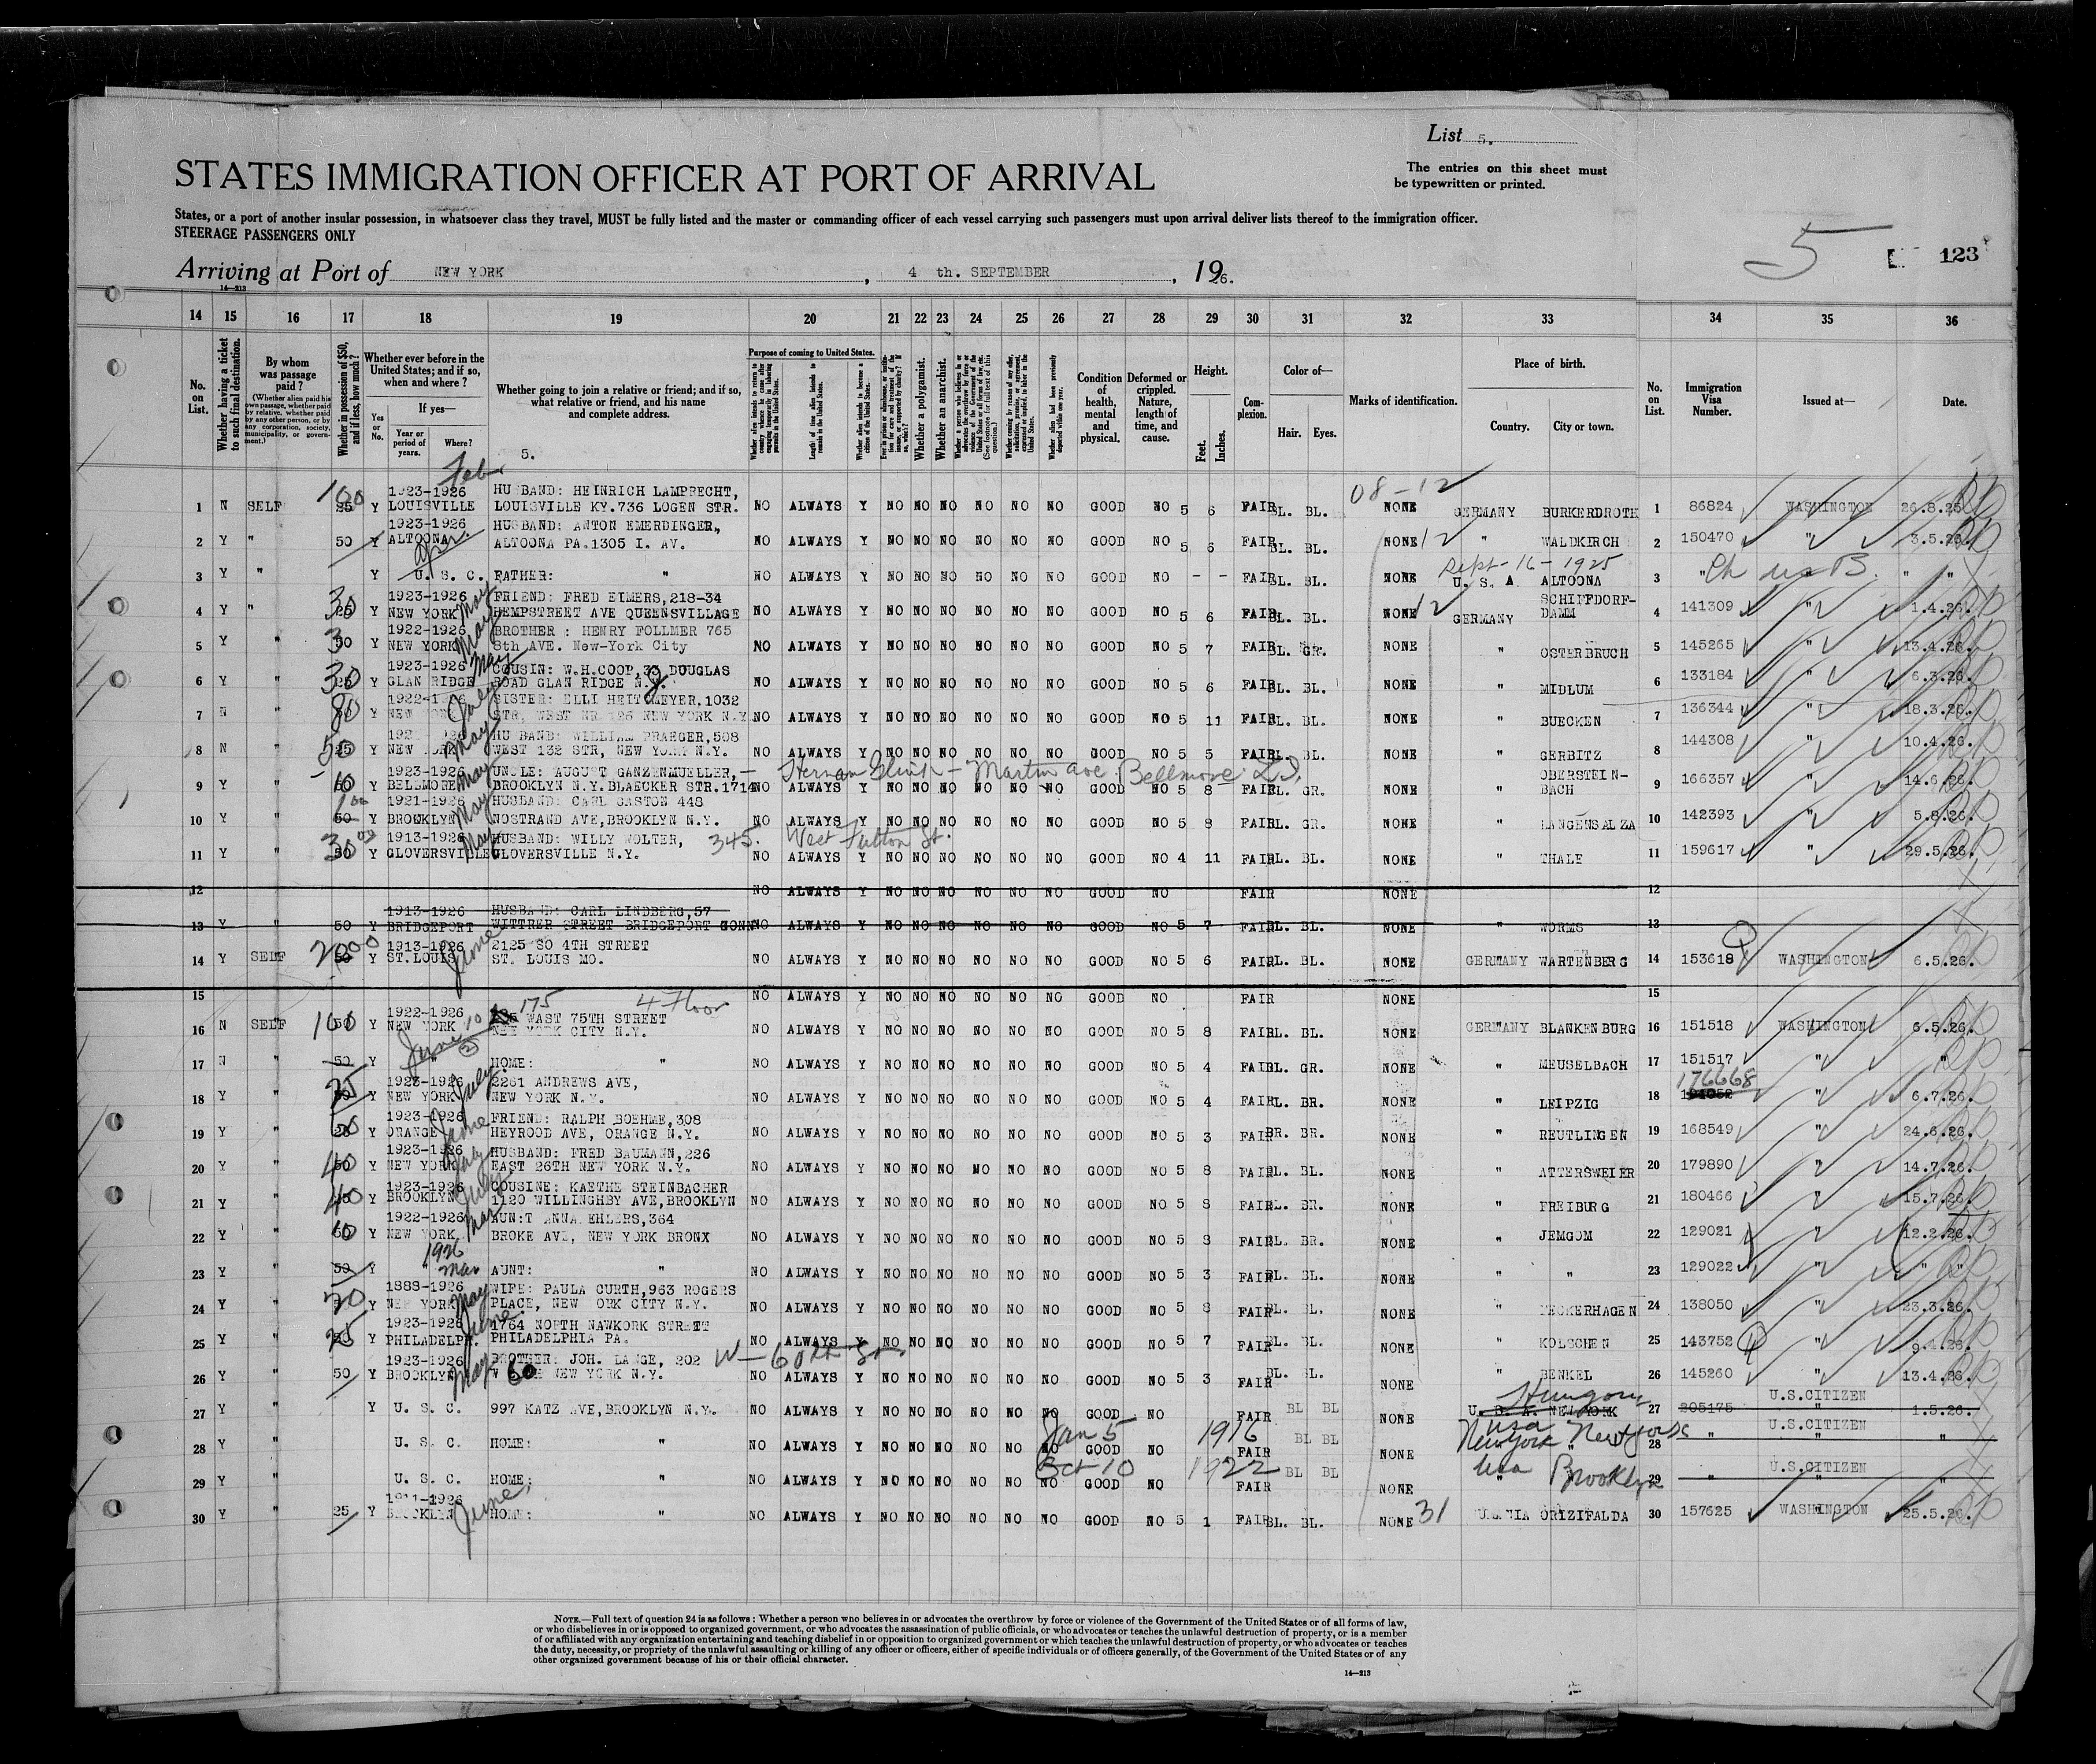 List 5.
The entries on this sheet must
be typewritten or printed.
STATES IMMIGRATION OFFICER AT PORT OF ARRIVAL
States, or a port of another insular possession, in whatsoever class they travel, MUST be fully listed and the master or commanding officer of each vessel carrying such passengers must upon arrival deliver lists thereof to the immigration officer.
STEERAGE PASSENGERS ONLY
5 123
Arriving at Port of NEW YORK, 4 th. SEPTEMBER, 1926.
14—213
14 15 16 17 18 19 20 21 22 23 24 25 26 27 28 29 30 31 32 33 34 35 36
No. on List.
Whether having a ticket to such final destination.
By whom was passage paid?
(Whether alien paid his own passage, whether paid by relative, whether paid by any other person, or by any corporation, society, municipality, or government.)
Whether in possession of $50, and if less, how much?
Whether ever before in the United States; and if so, when and where?
If yes—
Yes or No.
Year or period of years.
Where?
Whether going to join a relative or friend; and if so, what relative or friend, and his name and complete address.
5.
Purpose of coming to United States.
Whether a polygamist.
Whether an anarchist.
Condition of health, mental and physical.
Deformed or crippled. Nature, length of time, and cause.
Height.
Feet. Inches.
Complexion.
Color of—
Hair. Eyes.
Marks of identification.
Place of birth.
Country. City or town.
No. on List.
Immigration Visa Number.
Issued at—
Date.
Feb 08-12
1 N SELF 100 Y 1923-1926 LOUISVILLE HUSBAND: HEINRICH LAMPRECHT, LOUISVILLE KY.736 LOGEN STR. NO ALWAYS Y NO NO NO NO NO NO GOOD NO 5 6 FAIR BL. BL. NONE GERMANY BURKERDROTH 1 86824 WASHINGTON 26.8.25
2 Y " 50 Y 1923-1926 ALTOONA HUSBAND: ANTON EMERDINGER, ALTOONA PA.1305 I. AV. NO ALWAYS Y NO NO NO NO NO NO GOOD NO 5 6 FAIR BL. BL. NONE 12 " WALDKIRCH 2 150470 " 3.5.26.
Sept-16-1925
3 Y " Y U. S. C. FATHER: " NO ALWAYS Y NO NO NO NO NO NO GOOD NO - - FAIR BL. BL. NONE U. S. A ALTOONA 3 " " "
4 Y " 30 Y 1923-1926 NEW YORK May FRIEND: FRED EIMERS,218-34 HEMPSTREET AVE QUEENSVILLAGE NO ALWAYS Y NO NO NO NO NO NO GOOD NO 5 6 FAIR BL. BL. NONE 12 GERMANY SCHIFFDORF-DAMM 4 141309 " 1.4.26.
5 Y " Y 1922-1926 NEW YORK May BROTHER : HENRY FOLLMER 765 8th AVE. New-York City NO ALWAYS Y NO NO NO NO NO NO GOOD NO 5 7 FAIR BL. GR. NONE " OSTERBRUCH 5 145265 " 13.4.26.
6 Y " 30 Y 1923-1926 GLAN RIDGE May COUSIN: W.H.COOP,33 DOUGLAS ROAD GLAN RIDGE N.J. NO ALWAYS Y NO NO NO NO NO NO GOOD NO 5 6 FAIR BL. BL. NONE " MIDLUM 6 133184 " 6.3.26.
7 N " 80 Y NEW July SISTER: ELLI HEITMEYER,1032 STR, WEST NEW YORK N.Y. NO ALWAYS Y NO NO NO NO NO NO GOOD NO 5 11 FAIR BL. BL. NONE " BUECKEN 7 136344 " 18.3.26.
8 N " 50 Y NEW YORK May HUSBAND: WILLIAM PRAEGER,508 WEST 132 STR, NEW YORK N.Y. NO ALWAYS Y NO NO NO NO NO NO GOOD NO 5 5 FAIR BL. BL. NONE " GERBITZ 8 144308 " 10.4.26.
9 Y " Y 1923-1926 BELLMORE May UNCLE: AUGUST GANZENMUELLER,- BROOKLYN N.Y.BLAECKER STR.1714 Martin ave Bellmore L.I. NO ALWAYS Y NO NO NO NO NO NO GOOD NO 5 8 FAIR BL. GR. NONE " OBERSTEIN-BACH 9 166357 " 14.6.26.
10 Y " 100 Y 1921-1926 BROOKLYN May HUSBAND: CARL GASTON 448 NOSTRAND AVE,BROOKLYN N.Y. NO ALWAYS Y NO NO NO NO NO NO GOOD NO 5 8 FAIR BL. GR. NONE " LANGENSALZA 10 142393 " 5.8.26.
11 Y " 30 Y 1913-1926 GLOVERSVILLE May HUSBAND: WILLY WOLTER, GLOVERSVILLE N.Y. 345. West Fulton St. NO ALWAYS Y NO NO NO NO NO NO GOOD NO 4 11 FAIR BL. BL. NONE " THALE 11 159617 " 29.5.26.
12 NO ALWAYS Y NO NO NO NO NO NO GOOD NO FAIR NONE 12
13 Y " 50 Y 1913-1926 BRIDGEPORT HUSBAND: CARL LINDBERG,57 WITTRER STREET BRIDGEPORT CONN NO ALWAYS Y NO NO NO NO NO NO GOOD NO 5 7 FAIR BL. BL. NONE " WORMS 13
14 Y SELF Y 1913-1926 ST.LOUIS June 2125 SO 4TH STREET ST. LOUIS MO. NO ALWAYS Y NO NO NO NO NO NO GOOD NO 5 6 FAIR BL. BL. NONE GERMANY WARTENBERG 14 153618 WASHINGTON 6.5.26.
15 NO ALWAYS Y NO NO NO NO NO NO GOOD NO FAIR NONE 15
16 N SELF 100 Y 1922-1926 NEW YORK June 10 175 4 Floor WAST 75TH STREET NEW YORK CITY N.Y. NO ALWAYS Y NO NO NO NO NO NO GOOD NO 5 8 FAIR BL. BL. NONE GERMANY BLANKENBURG 16 151518 WASHINGTON 6.5.26.
17 N " 50 Y " HOME: " NO ALWAYS Y NO NO NO NO NO NO GOOD NO 5 4 FAIR BL. GR. NONE " MEUSELBACH 17 151517 " "
18 Y " 25 Y 1923-1926 NEW YORK July 2261 ANDREWS AVE, NEW YORK N.Y. NO ALWAYS Y NO NO NO NO NO NO GOOD NO 5 4 FAIR BL. BR. NONE " LEIPZIG 18 176668 " 6.7.26.
19 Y " 60 Y 1923-1926 ORANGE June FRIEND: RALPH BOEHME,308 HEYROOD AVE, ORANGE N.Y. NO ALWAYS Y NO NO NO NO NO NO GOOD NO 5 3 FAIR BR. BR. NONE " REUTLINGEN 19 168549 " 24.6.26.
20 Y " 40 Y 1923-1926 NEW YORK July HUSBAND: FRED BAUMANN,226 EAST 26TH NEW YORK N.Y. NO ALWAYS Y NO NO NO NO NO NO GOOD NO 5 8 FAIR BL. BL. NONE " ATTERSWEIER 20 179890 " 14.7.26.
21 Y " 40 Y 1923-1926 BROOKLYN July COUSINE: KAETHE STEINBACHER 1120 WILLINGHBY AVE,BROOKLYN NO ALWAYS Y NO NO NO NO NO NO GOOD NO 5 8 FAIR BL. BR. NONE " FREIBURG 21 180466 " 15.7.26.
22 Y " 60 Y 1922-1926 NEW YORK Mar AUN:T ANNA EHLERS,364 BROKE AVE, NEW YORK BRONX NO ALWAYS Y NO NO NO NO NO NO GOOD NO 5 8 FAIR BL. BR. NONE " JEMGOM 22 129021 " 12.2.26.
23 Y " 50 Y 1926 Mar AUNT: " NO ALWAYS Y NO NO NO NO NO NO GOOD NO 5 3 FAIR BL. BL. NONE " " 23 129022 " "
24 Y " 70 Y 1888-1926 NEW YORK May WIFE: PAULA CURTH,963 ROGERS PLACE, NEW YORK CITY N.Y. NO ALWAYS Y NO NO NO NO NO NO GOOD NO 5 8 FAIR BL. BL. NONE " 24 138050 " 23.3.26.
25 Y " 25 Y 1923-1926 PHILADELPH. June 1764 NORTH NAWKORK STREET PHILADELPHIA PA. NO ALWAYS Y NO NO NO NO NO NO GOOD NO 5 7 FAIR BL. BL. NONE " KOLSCHEN 25 143752 " 9.4.26.
26 Y " 50 Y 1923-1926 BROOKLYN May BROTHER: JOH. LANGE, 202 W 60 NEW YORK N.Y. W - 60th St. NO ALWAYS Y NO NO NO NO NO NO GOOD NO 5 3 FAIR BL. BL. NONE " BENKEL 26 145260 " 13.4.26.
27 Y " Y U. S. C. 997 KATZ AVE,BROOKLYN N.Y. NO ALWAYS Y NO NO NO NO NO NO GOOD NO FAIR BL BL NONE U. S. A. NEW YORK Hungary 27 205175 U.S.CITIZEN " 1.5.26.
28 Y " U. S. C. HOME: " NO ALWAYS Y NO NO NO NO NO NO Jan 5 1916 GOOD NO FAIR BL BL NONE Usa New York 28 " U.S.CITIZEN " "
29 Y " U. S. C. HOME: " NO ALWAYS Y NO NO NO NO NO NO Oct 10 1922 GOOD NO FAIR BL BL NONE Usa Brooklyn 29 " U.S.CITIZEN " "
30 Y " 25 Y 1911-1926 BROOKLYN June HOME: " NO ALWAYS Y NO NO NO NO NO NO GOOD NO 5 1 FAIR BL. BL. NONE 31 ORIZIFALDA 30 157625 WASHINGTON 25.5.26.
NOTE.—Full text of question 24 is as follows: Whether a person who believes in or advocates the overthrow by force or violence of the Government of the United States or of all forms of law,
or who disbelieves in or is opposed to organized government, or who advocates the assassination of public officials, or who advocates or teaches the unlawful destruction of property, or is a member
of or affiliated with any organization entertaining and teaching disbelief in or opposition to organized government or which teaches the unlawful destruction of property, or who advocates or teaches
the duty, necessity, or propriety of the unlawful assaulting or killing of any officer or officers, either of specific individuals or of officers generally, of the Government of the United States or of any
other organized government because of his or their official character.
14—213